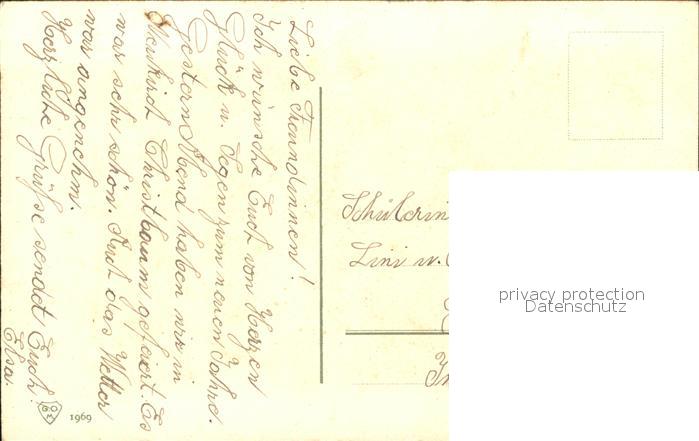 Liebe Freundinnen!
Ich wünsche Euch von Herzen
Glück u. Segen zum neuen Jahre.
Gestern Abend haben wir in
Neukirch Christbaum gefeiert. Es
war sehr schön. Nut das Wetter
war angenehm.
Herzliche Grüße sendet Euch:
Elsa.
Schülerin
Lini u.
privacy protection
Datenschutz
1969